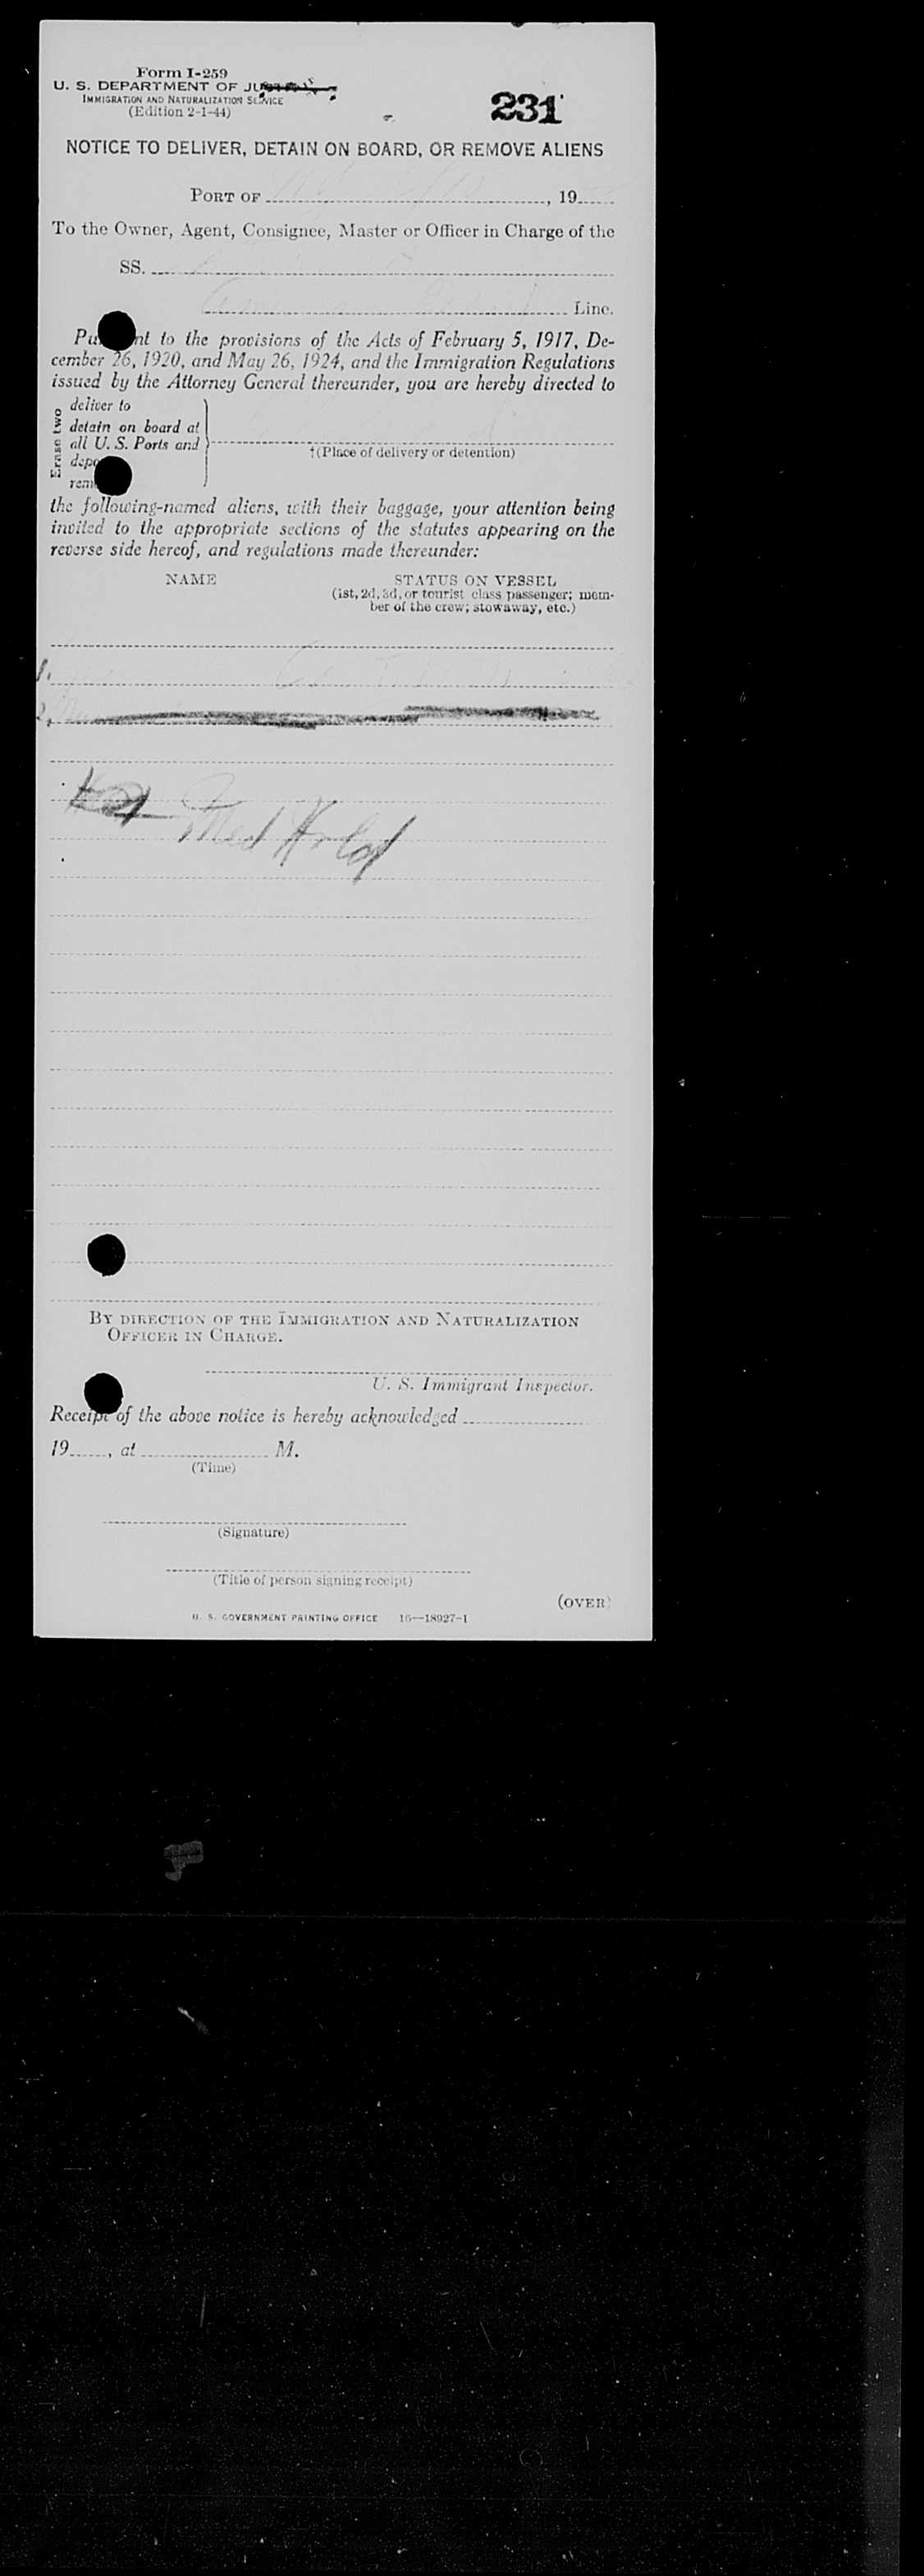 Form I-259
U. S. DEPARTMENT OF
IMMIGRATION AND NATURALIZATION SERVICE
(Edition 2-1-44)
231
NOTICE TO DELIVER, DETAIN ON BOARD, OR REMOVE ALIENS
PORT OF , 19
To the Owner, Agent, Consignee, Master or Officer in Charge of the
SS.
Line.
nt to the provisions of the Acts of February 5, 1917, De-
cember 26, 1920, and May 26, 1924, and the Immigration Regulations
issued by the Attorney General thereunder, you are hereby directed to
Erase two
deliver to
detain on board at
all U. S. Ports and
†(Place of delivery or detention)
the following-named aliens, with their baggage, your attention being
invited to the appropriate sections of the statutes appearing on the
reverse side hereof, and regulations made thereunder:
NAME
STATUS ON VESSEL
(1st, 2d, 3d, or tourist class passenger; mem-
ber of the crew; stowaway, etc.)
1.
2.
Med Hold
BY DIRECTION OF THE IMMIGRATION AND NATURALIZATION
OFFICER IN CHARGE.
U. S. Immigrant Inspector.
Receipt of the above notice is hereby acknowledged
19 , at M.
(Time)
(Signature)
(Title of person signing receipt)
(OVER)
U. S. GOVERNMENT PRINTING OFFICE 16—18927-1